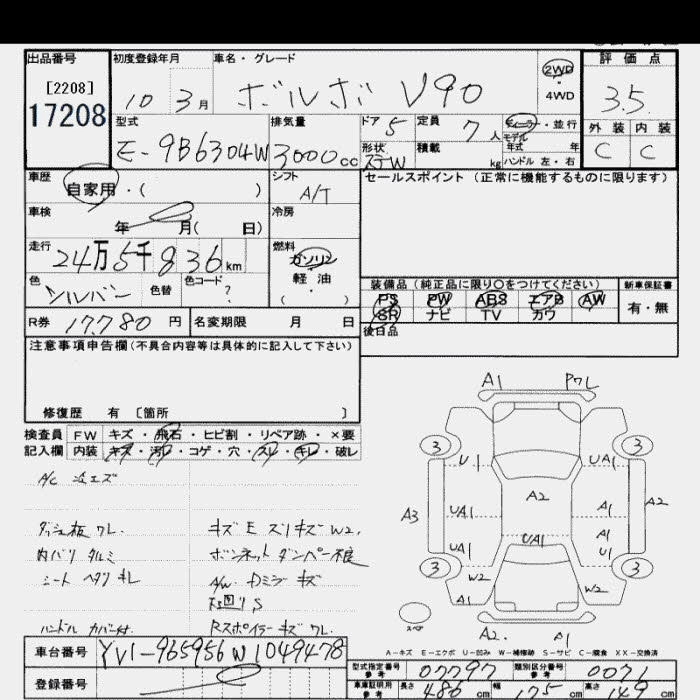 出品番号
[2208]
17208
初度登録年月
10 3月
車名・グレード
ボルボ V90
2WD
・
4WD
評価点
3.5
外装 内装
C C
型式
E-9B6304W
排気量
3000cc
ドア 5
形状 ステW
定員 7人
積載 kg
ディーラー・並行
モデル
年式 年
ハンドル 左・右
車歴
自家用・( )
シフト
A/T
セールスポイント(正常に機能するものに限ります)
車検
年 月( 日)
冷房
走行
24万5千836km
燃料
ガソリン
軽油
( ・ )
色
シルバー
色替
色コード
?
装備品(純正品に限り○をつけてください)
新車保証書
PS PW ABS エアB AW
SR ナビ TV カワ
有・無
R券 17,780 円
名変期限 月 日
後日品
注意事項申告欄(不具合内容等は具体的に記入して下さい)
修復歴 有 〔箇所 〕
検査員 FW キズ・飛石・ヒビ割・リペア跡・×要
記入欄 内装 キズ・汚レ・コゲ・穴・スレ・キレ・破レ
A/C
ダッシュ板 ワレ.
キズ E スリキズ W2.
内バリ タルミ
ボンネット ダンパー不良
シート ヘタリ キレ
A/W. Dミラー キズ
ハンドル カバー付.
Rスポイラー キズ ワレ.
A1 アワレ
3 3
U1 UA1
A2
A3 UA1 A1 A2
UA1 UA1 A1
U1
3 3
W2 W2
A1
スペア
A2. A1
A-キズ E-エクボ U-凹み W-補修跡 S-サビ C-腐食 XX-交換済
車台番号 YV1-965956W1049478
型式指定番号
参考
07797
類別区分番号
参考
0071
登録番号
車庫証明用
参考
長さ 486 cm
幅 175 cm
高さ 149 cm